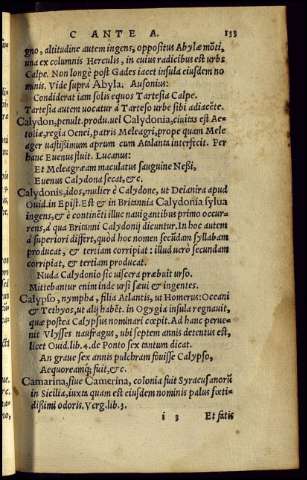 C ANTE A. 133
gno, altitudine autem ingens, oppositus Abylæ mõti,
una ex columnis Herculis, in cuius radicibus est urbs
Calpe. Non longè post Gades iacet insula eiusdem no
minis. Vide suprà Abyla. Ausonius:
Condiderat iam solis equos Tartesia Calpe.
Tartesia autem uocatur à Tarteso urbe sibi adiacẽte.
Calydon, penult. produ. uel Calydonia, ciuitas est Ae-
toliæ, regia Oenei, patris Meleagri, prope quam Mele
ager uastissimum aprum cum Atalanta interfecit. Per
hanc Euenus fluit. Lucanus:
Et Meleagræam maculatus sanguine Nessi,
Euenus Calydona secat, &c.
Calydonis, idos, mulier è Calydone, ut Deianira apud
Ouid. in Epist. Est & in Britannia Calydonia sylua
ingens, & è continẽti illuc nauigantibus primo occur-
rens, à qua Britanni Calydonij dicuntur. In hoc autem
à superiori differt, quòd hoc nomen secũdam syllabam
producat, & tertiam corripiat: illud uero secundam
corripiat, & tertiam producat.
Nuda Calydonio sic uiscera præbuit urso.
Mittebantur enim inde ursi sæui & ingentes.
Calypso, nympha, filia Atlantis, ut Homerus: Oceani
& Tethyos, ut alij habẽt. in Ogygia insula regnauit,
quæ postea Calypsus nominari cœpit. Ad hanc perue-
nit Vlysses naufragus, ubi septem annis detentus est,
licet Ouid. lib. 4. de Ponto sex tantum dicat.
An graue sex annis pulchram fouisse Calypso,
Aequoreamq; fuit, &c.
Camarina, siue Camerina, colonia fuit Syracusanorũ
in Sicilia, iuxta quam est eiusdem nominis palus fœti-
dissimi odoris. Verg. lib. 3.
i 3 Et fatis